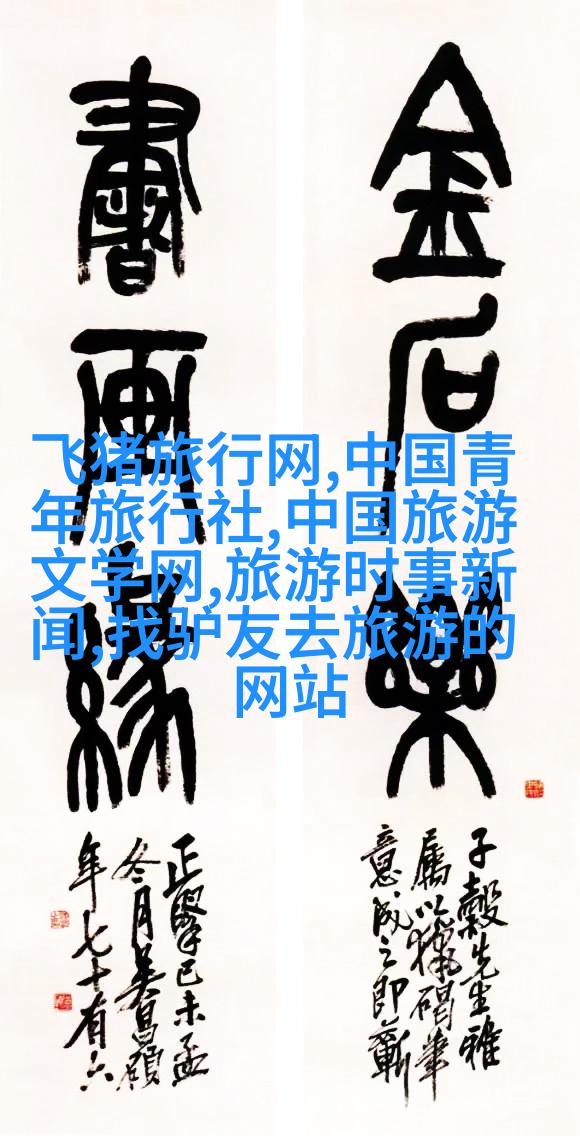 金石樂
書画緣
子穀先生雅
屬以獵碣筆
意成之即蘄
正擘己未孟
冬月吴昌碩
年七十有六
飞猪旅行网,中国青
年旅行社,中国旅游
文学网,旅游时事新
闻,找驴友去旅游的
网站